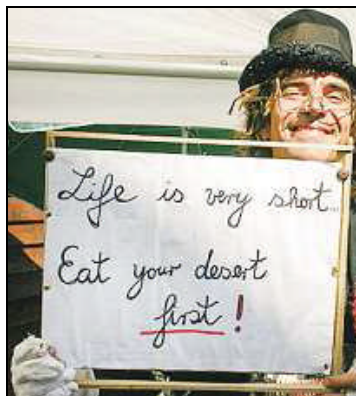 Life is very short...
Eat your desert
first!